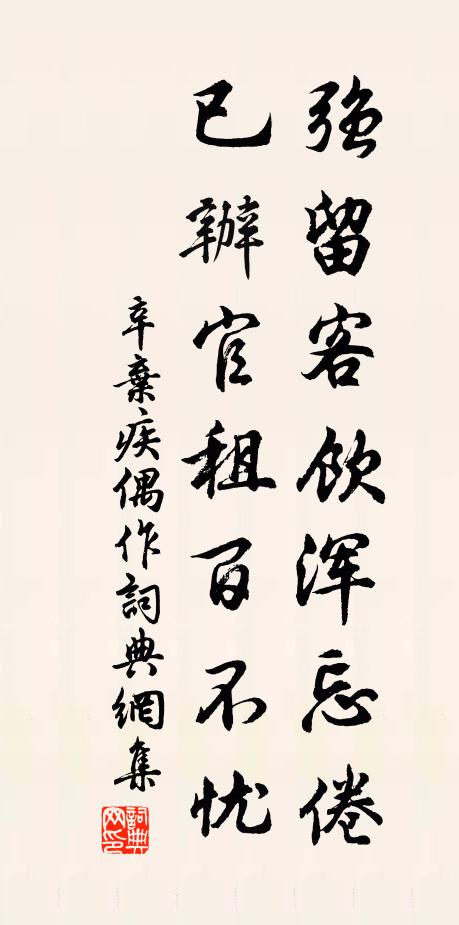 强留客饮浑忘倦
已辦官租百不忧
辛棄疾偶作詞典網集
詞典
网印